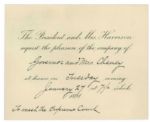 The President and Mrs. Harrison
request the pleasure of the company of
Governor and Mrs Cheney
at dinner on Tuesday evening
January 27th at 7½ o'clock
1891
To meet the Supreme Court